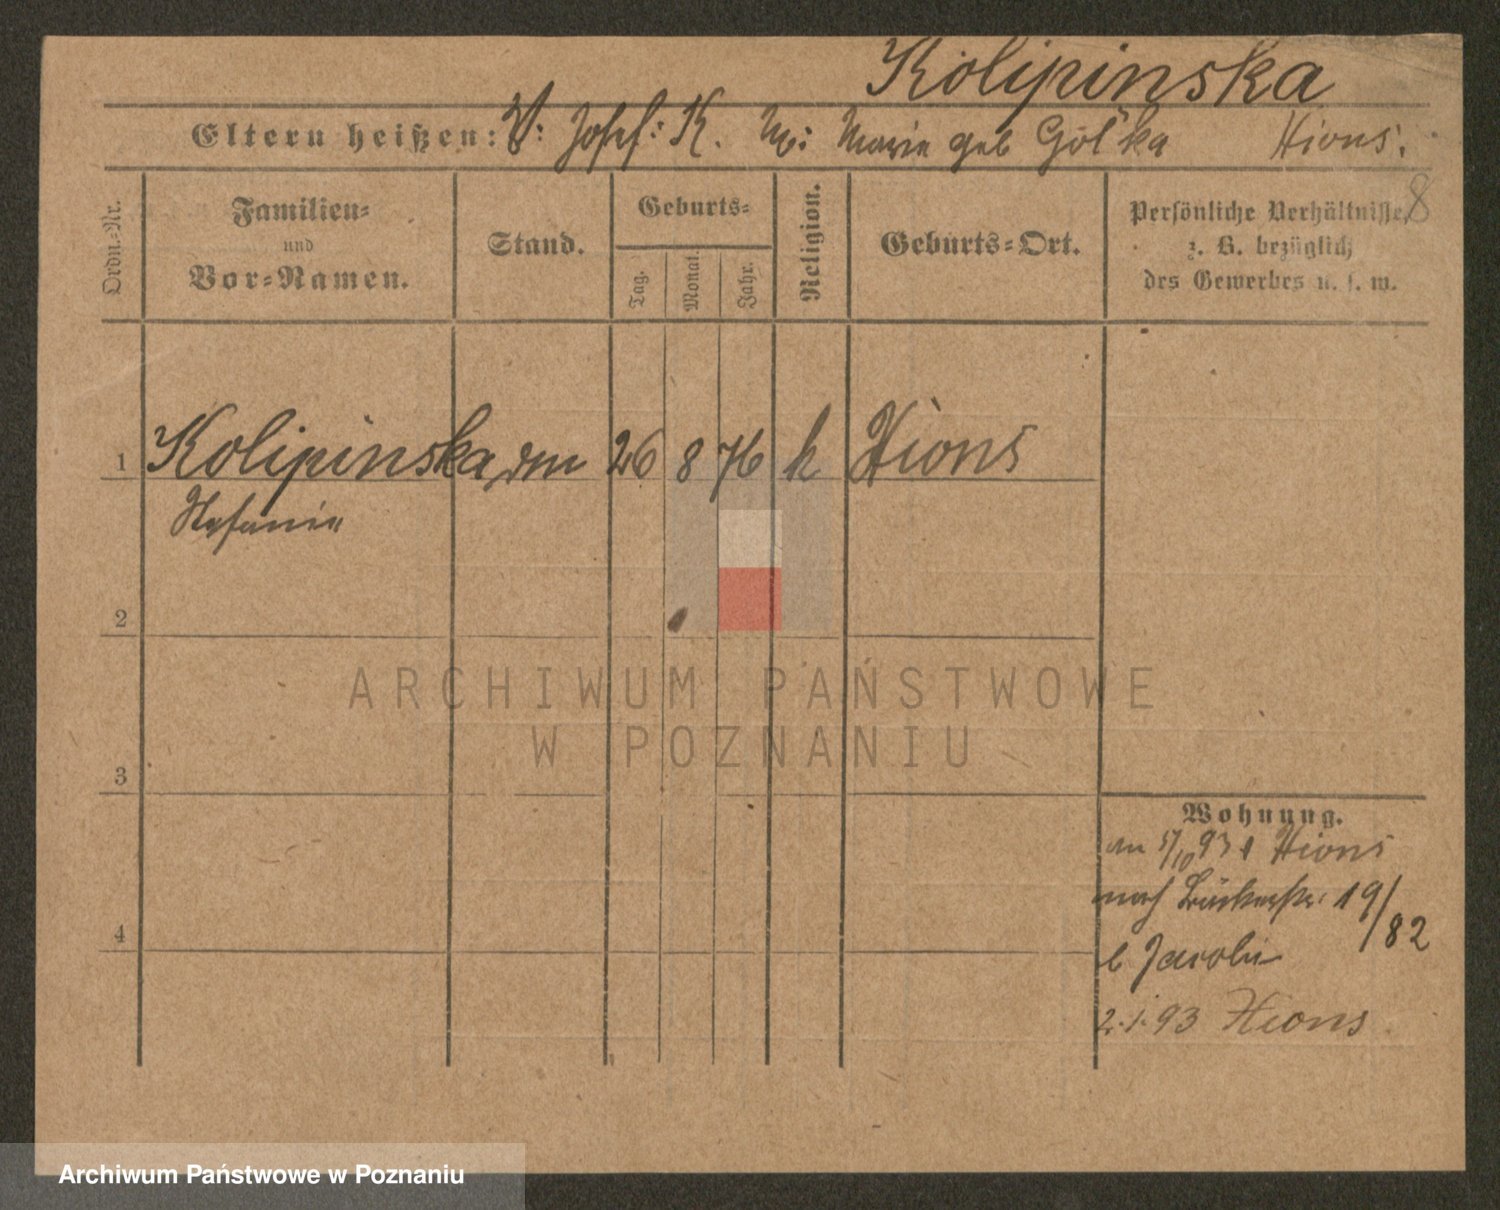 Kolipinska
Eltern heißen: V: Josef: K. M: Marie geb Golka Xions.
8
Ordn.-Nr.
Familien-
und
Vor-Namen.
Stand.
Geburts-
Tag.
Monat.
Jahr.
Religion.
Geburts-Ort.
Persönliche Verhältnisse,
z. B. bezüglich
des Gewerbes u. s. w.
1 Kolipinska 26 8 76 k Xions
Stefanie
2
3
4
Wohnung.
an 5/10 93 Xions
nach 19/
82
b Jacobi
2.1.93 Xions
ARCHIWUM PAŃSTWOWE
W POZNANIU
Archiwum Państwowe w Poznaniu